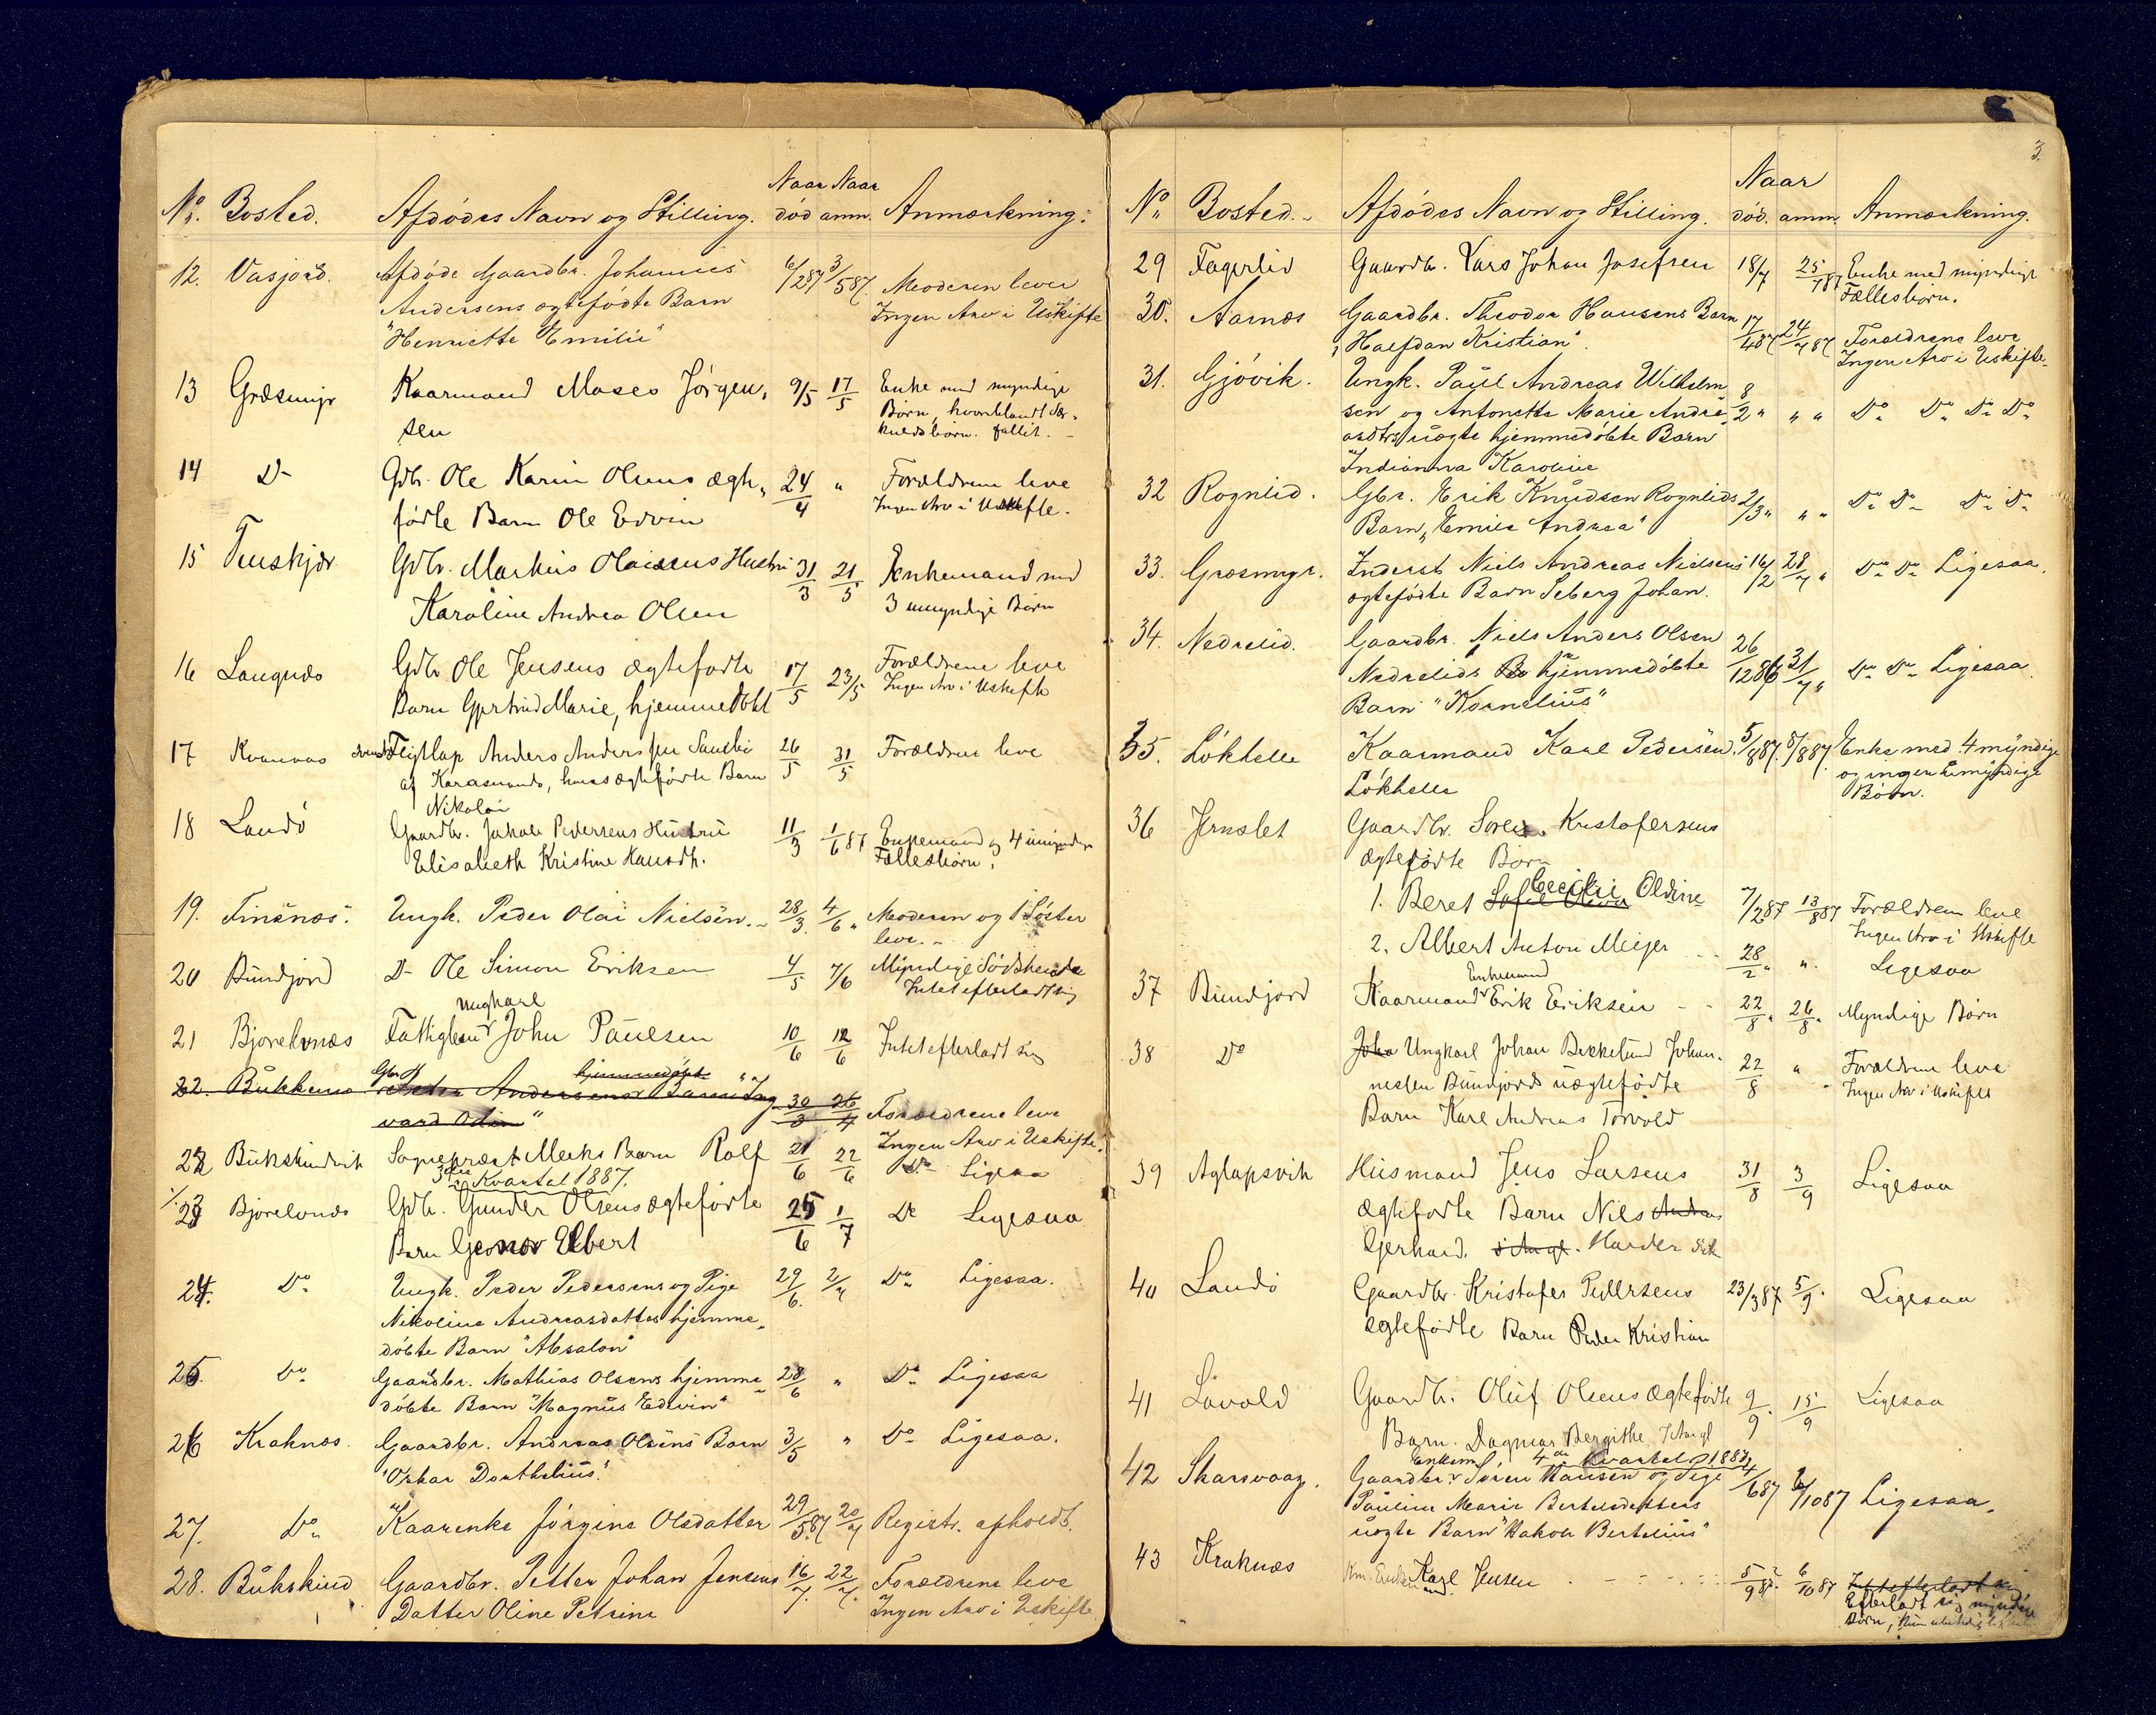 Naar Naar
No. Bosted. Afdødes Navn og Stilling. død anm. Anmærkning.
12. Vasjord. Afdøde Gaardbr. Johannes 6/2 87 3/5 87. Moderen lever
Andersens ægtefødte Barn Ingen Arv i Uskifte
"Henriette Emilie"
13 Græsmyr Kaarmand Moses Jörgen„ 9/5 17/5 Enke med myndige
sen Børn, hvoriblandt Sær„
kuldsbørn. fallit. –
14 D– Gdb. Ole Karin Olsens ægte„ 24/4 " Forældrene leve
fødte Barn Ole Edvin Ingen Arv i Uskifte.
15 Finskjær Gdbr. Markus Olaisens Hustru 31/3 21/5 Enkemand med
Karoline Andrea Olsen 3 umyndige Børn
16 Langnæs Gdbr Ole Jensens ægtefødte 17/5 23/5 Forældrene leve
Barn Gjertrud Marie, hjemmedöbt Ingen Arv i Uskifte
17 Kvannaas Fjeldlap Anders Andersen 26/5 31/5 Forældrene leve
af Karasuando, hans ægtefødte Barn
Nikolai
18 Landö Gaardbr. Jakob Pedersens Hustru 11/3 1/6 87 Enkemand og 4 umyndige
Elisabeth Kristine Hansdtr. Fællesbørn.
19. Finsnæs. Ungk. Peder Olai Nielsen. – 28/3. 4/6 " Moderen og 1 Söster
leve. –
20 Bundjord D– Ole Simon Eriksen 4/5 7/6 Myndige Södskende
Intet efterladt sig
Ungkarl
21 Bjorelvnæs Fattiglem John Paulsen 10/6 12/6 Intet efterladt sig
Gbr hjemmedøbt
22. Bukkenes Peter Andersens Barn "Ing 30/3 26/4 Forældrene leve
vard Odin" Ingen Arv i Uskifte.
22 Bukskindvik Sognepræst Meeks Barn Rolf 21/6 22/6 Do Ligesaa
3die Kvartal 1887.
23 Bjorelvnæs Gdb. Gunder Olsens ægtefødte 25/6 1/7 Do Ligesaa
Barn Georg Elbert
24. Do Ungk. Peder Pedersens og Pige 29/6. 2/7 Do Ligesaa.
Nikoline Andreasdatters hjemme„
døbte Barn "Absalon"
25. Do Gaardbr. Mathias Olsens hjemme„ 28/6 " Do Ligesaa
døbte Barn "Magnus Edvin"
26 Kraknæs. Gaardbr. Andreas Olsens Barn 3/5 " Do Ligesaa.
"Oskar Dorthelius".
27. Do Kaarenke Jörgine Olsdatter 29/5 87 20/7 Registr. afholdt.
28. Bukskind Gaardbr. Petter Johan Jensens 16/7. 22/7. Forældrene leve
Datter Oline Petrine Ingen Arv i Uskifte
3.
Naar
No. Bosted. – Afdødes Navn og Stilling. død. anm. Anmærkning.
29 Fagerlid Gaardbr. Lars Johan Josefsen 18/7 25/7 87 Enke med myndige
Fællesbørn.
30. Aarnæs Gaardbr. Theodor Hansens Barn 17/4 87 24/7 87 Forældrene leve
"Halfdan Kristian". Ingen Arv i Uskifte.
31. Gjøvik. Ungk. Paul Andreas Wilhelm 8/2 " " " Do Do Do Do
sen og Antonette Marie Andre
asdtrs uægte hjemmedøbte Barn
Indianna Karoline
32 Rognlid. Gbr. Erik Knudsen Rognlids 2/3 " " " Do Do Do Do
Barn, "Emilie Andrea"
33. Græsmyr. Inderst Niels Andreas Nielsens 16/2 28/7 " Do Do Ligesaa.
ægtefødte Barn Seberg Johan.
34. Nedrelid. Gaardbr. Niels Anders Olsen 26/12 86 31/7 " Do Do Ligesaa.
Nedrelids hjemmedøbte
Barn "Kornelius"
35. Lökhelle Kaarmand Karl Pedersen. 5/8 87. 8/8 87. Enke med 4 myndige
Lökhelle og ingen umyndige
Børn.
36 Jernslet Gaardbr. Soren Kristofersens
ægtefødte Børn
Cecilie
1. Beret Sofie Oliva Oldine 7/2 87 13/8 87 Forældrene leve
Ingen Arv i Uskifte
2. Albert Anton Meijer – – 28/2 " " Ligesaa
Enkemand
37 Bundjord Kaarmand Erik Eriksen – – 22/8 " 26/8 " Myndige Børn
38 Do Joha Ungkarl Johan Bekkelund Johan„ 22/8 " Forældrene leve
nessen Bundjords uægtefødte Ingen Arv i Uskifte
Barn Karl Andreas Torvold
39 Aglapsvik Husmand Jens Larsens 31/8 3/9 Ligesaa
ægtefødte Barn Nils Andreas
Gerhard.
40 Landö Gaardbr. Kristofer Pedersens 23/3 87 5/9. Ligesaa
ægtefødte Barn Peder Kristian
41 Lavold Gaardbr. Oluf Olsens ægtefødte 9/9. 15/9 Ligesaa
Barn. Dagmar Bergithe
Enkem. 4de Kvartal 1887
42 Skarsvaag. Gaardbr. Søren Hansen og Pige 4/6 87 6/10 87 Ligesaa.
Pauline Marie Bertelsdatters
uægte Barn "Hakon Bertelius"
43 Kraknæs Km. Enkemand. Karl Jensen 5/9 87. 6/10 87 Intet efterladt sig
Efterladt sig myndige
Børn,